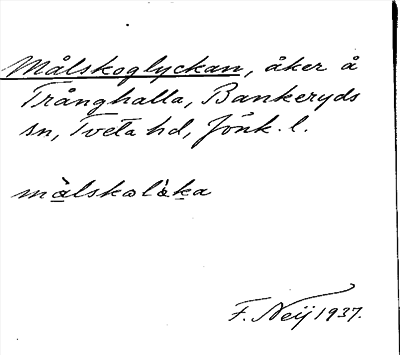 Målskoglyckan, åker å
Trånghalla, Bankeryds
sn, Tveta hd, Jönk. l.
må̀lskolø̀ka
F. Neij 1937.